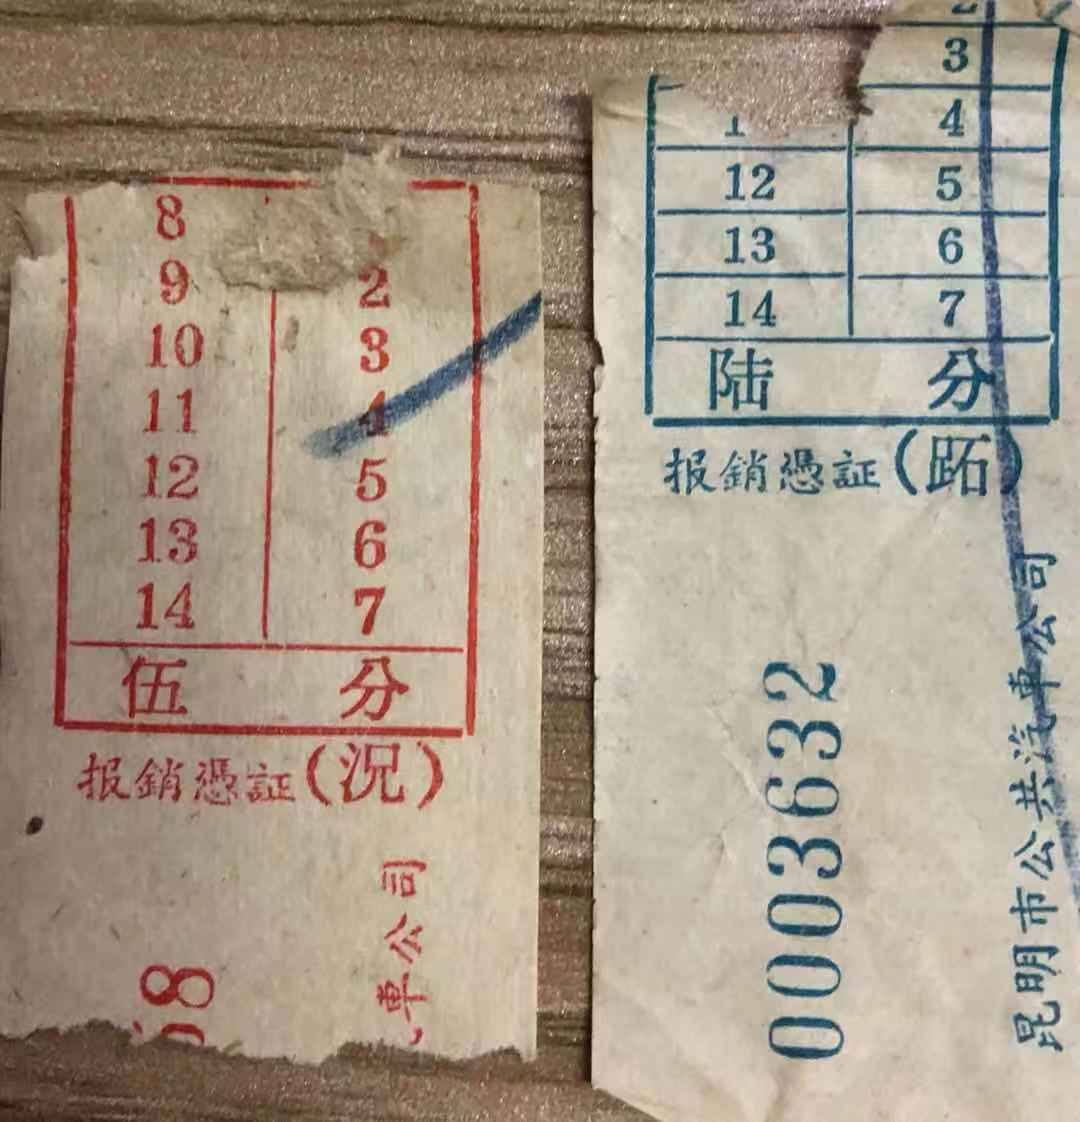 8
9 2
10 3
11 4
12 5
13 6
14 7
伍 分
报銷憑証(況)
車公司
8
3
4
12 5
13 6
14 7
陆 分
报銷憑証(跖)
0003632
昆明市公共汽車公司